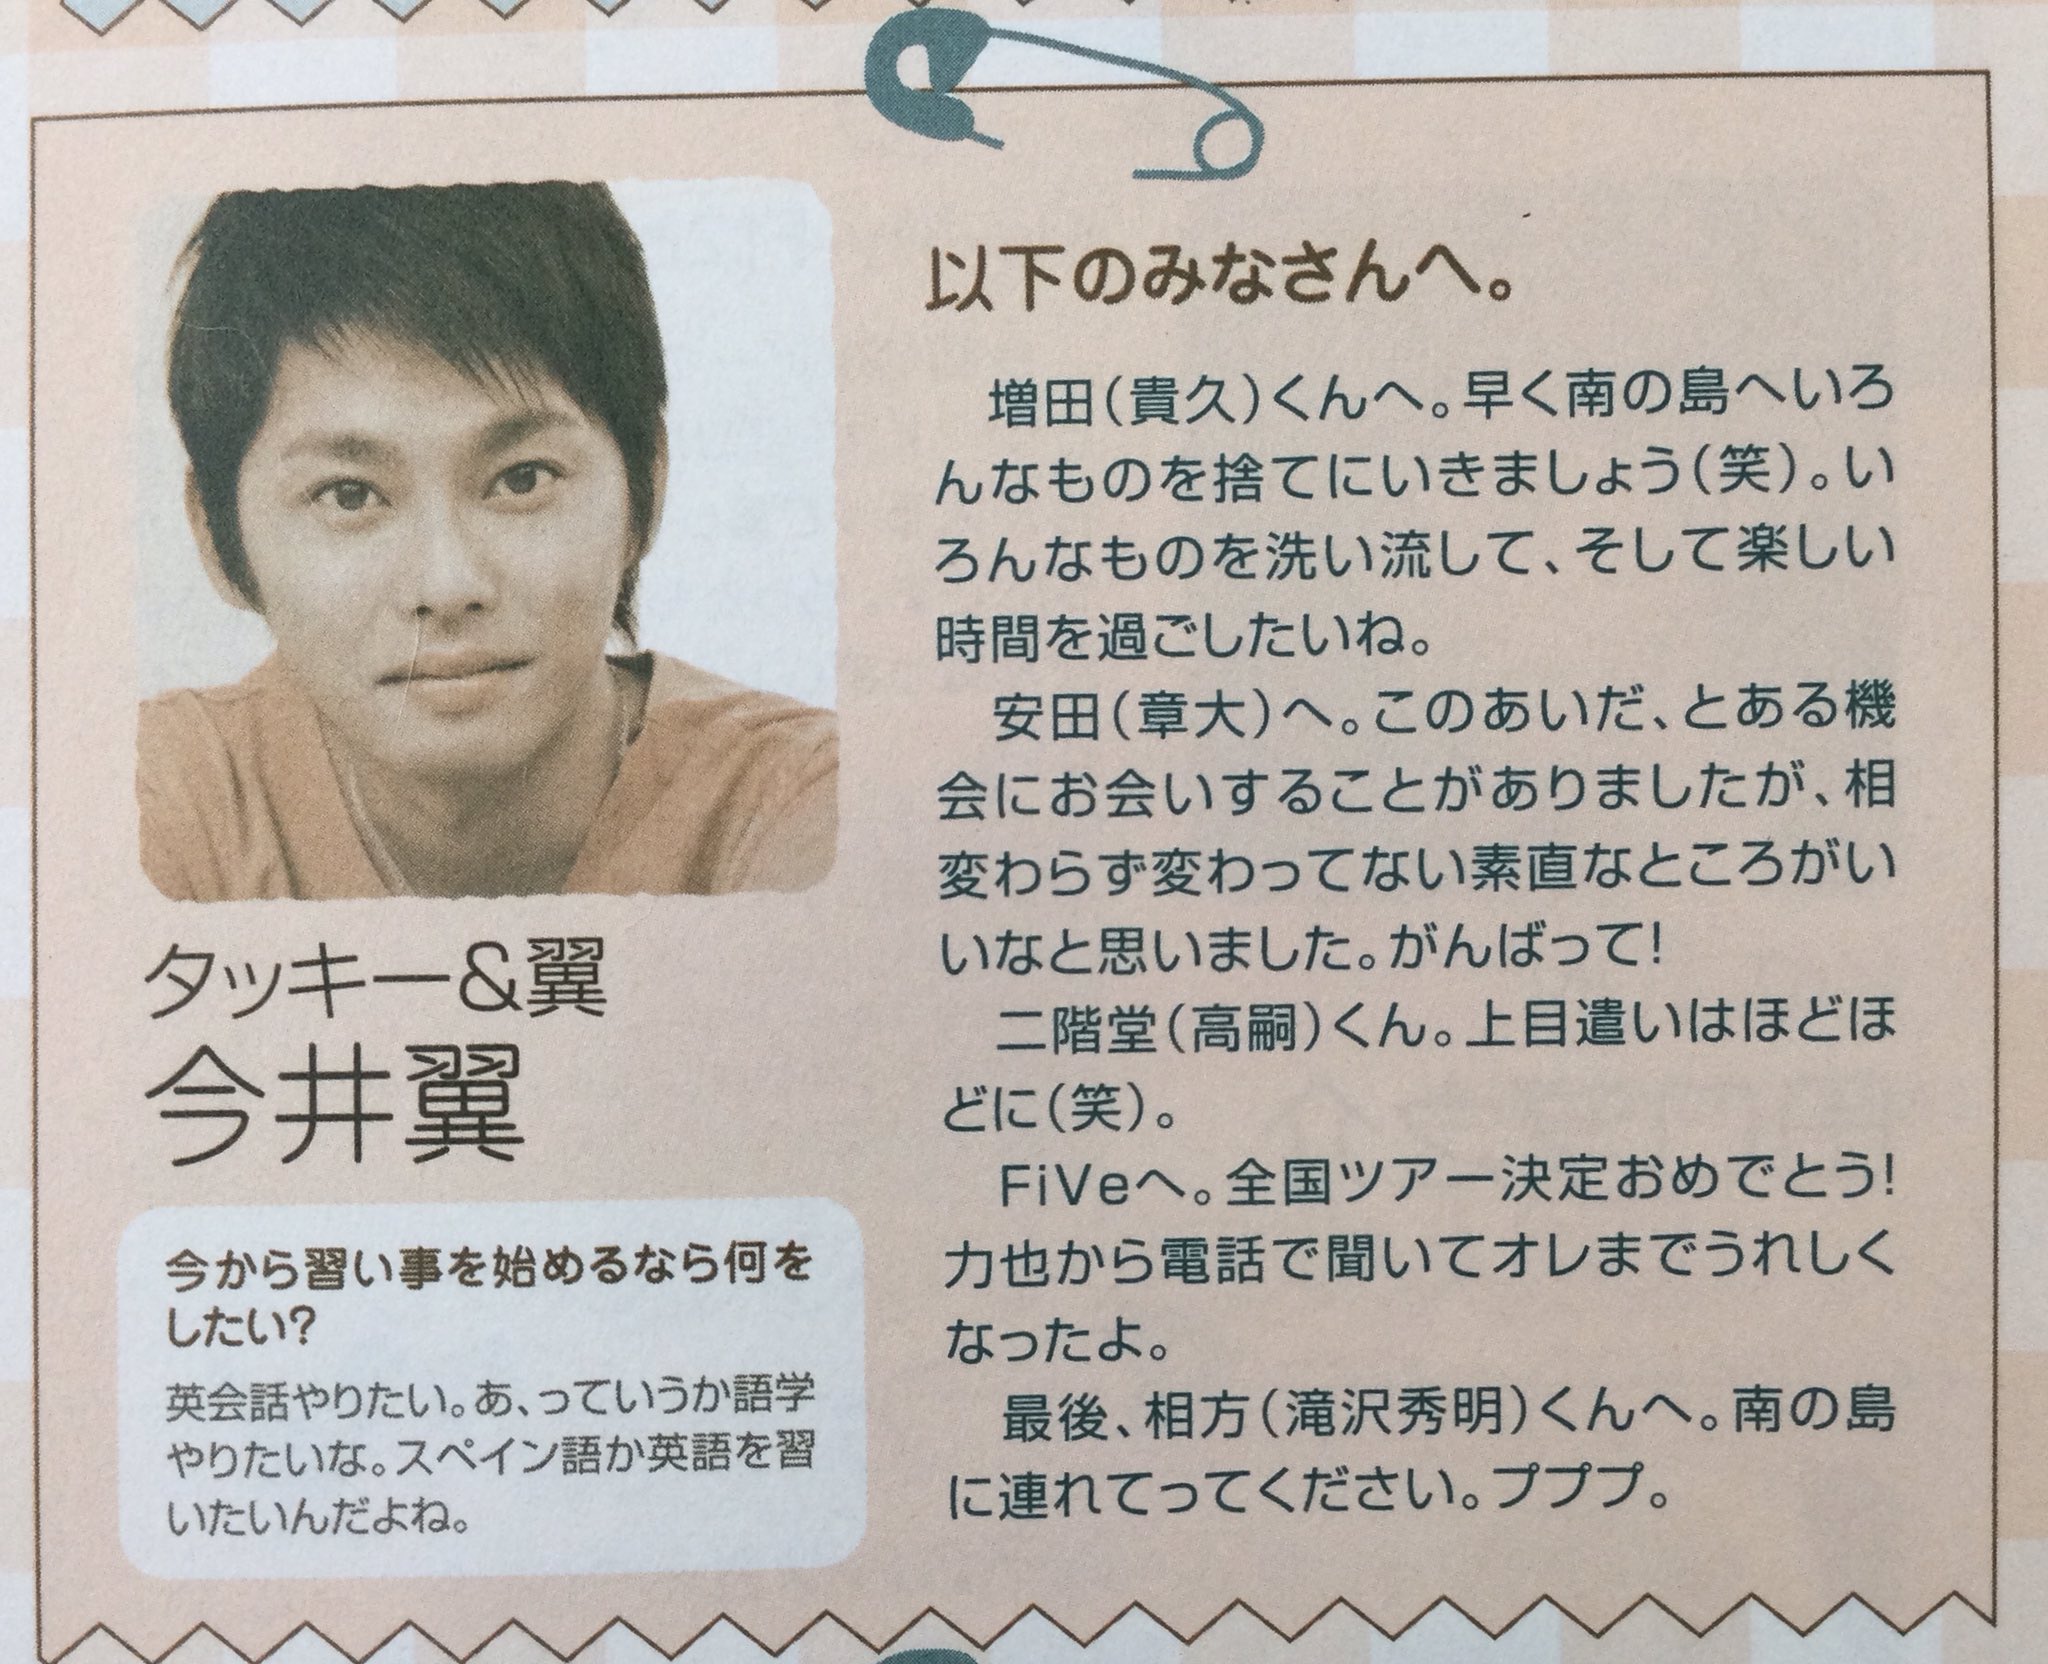 タッキー&翼
今井翼
今から習い事を始めるなら何を
したい?
英会話やりたい。あ、っていうか語学
やりたいな。スペイン語か英語を習
いたいんだよね。
以下のみなさんへ。
増田(貴久)くんへ。早く南の島へいろ
んなものを捨てにいきましょう(笑)。い
ろんなものを洗い流して、そして楽しい
時間を過ごしたいね。
安田(章大)へ。このあいだ、とある機
会にお会いすることがありましたが、相
変わらず変わってない素直なところがい
いなと思いました。がんばって!
二階堂(高嗣)くん。上目遣いはほどほ
どに(笑)。
FiVeへ。全国ツアー決定おめでとう!
力也から電話で聞いてオレまでうれしく
なったよ。
最後、相方(滝沢秀明)くんへ。南の島
に連れてってください。プププ。